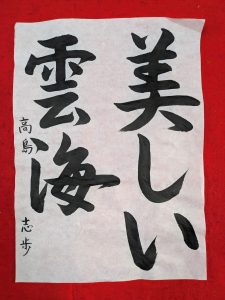 美しい
雲海
高島 志歩